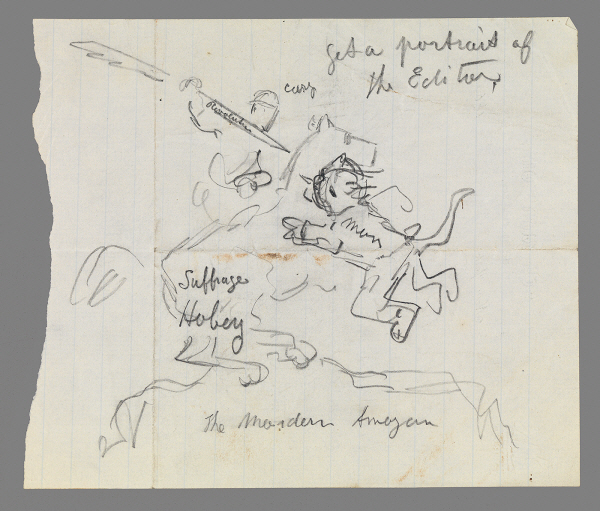 get a portrait of
the Editor
Revolution
Man
Suffrage
Hobey
The Mordern Amazon